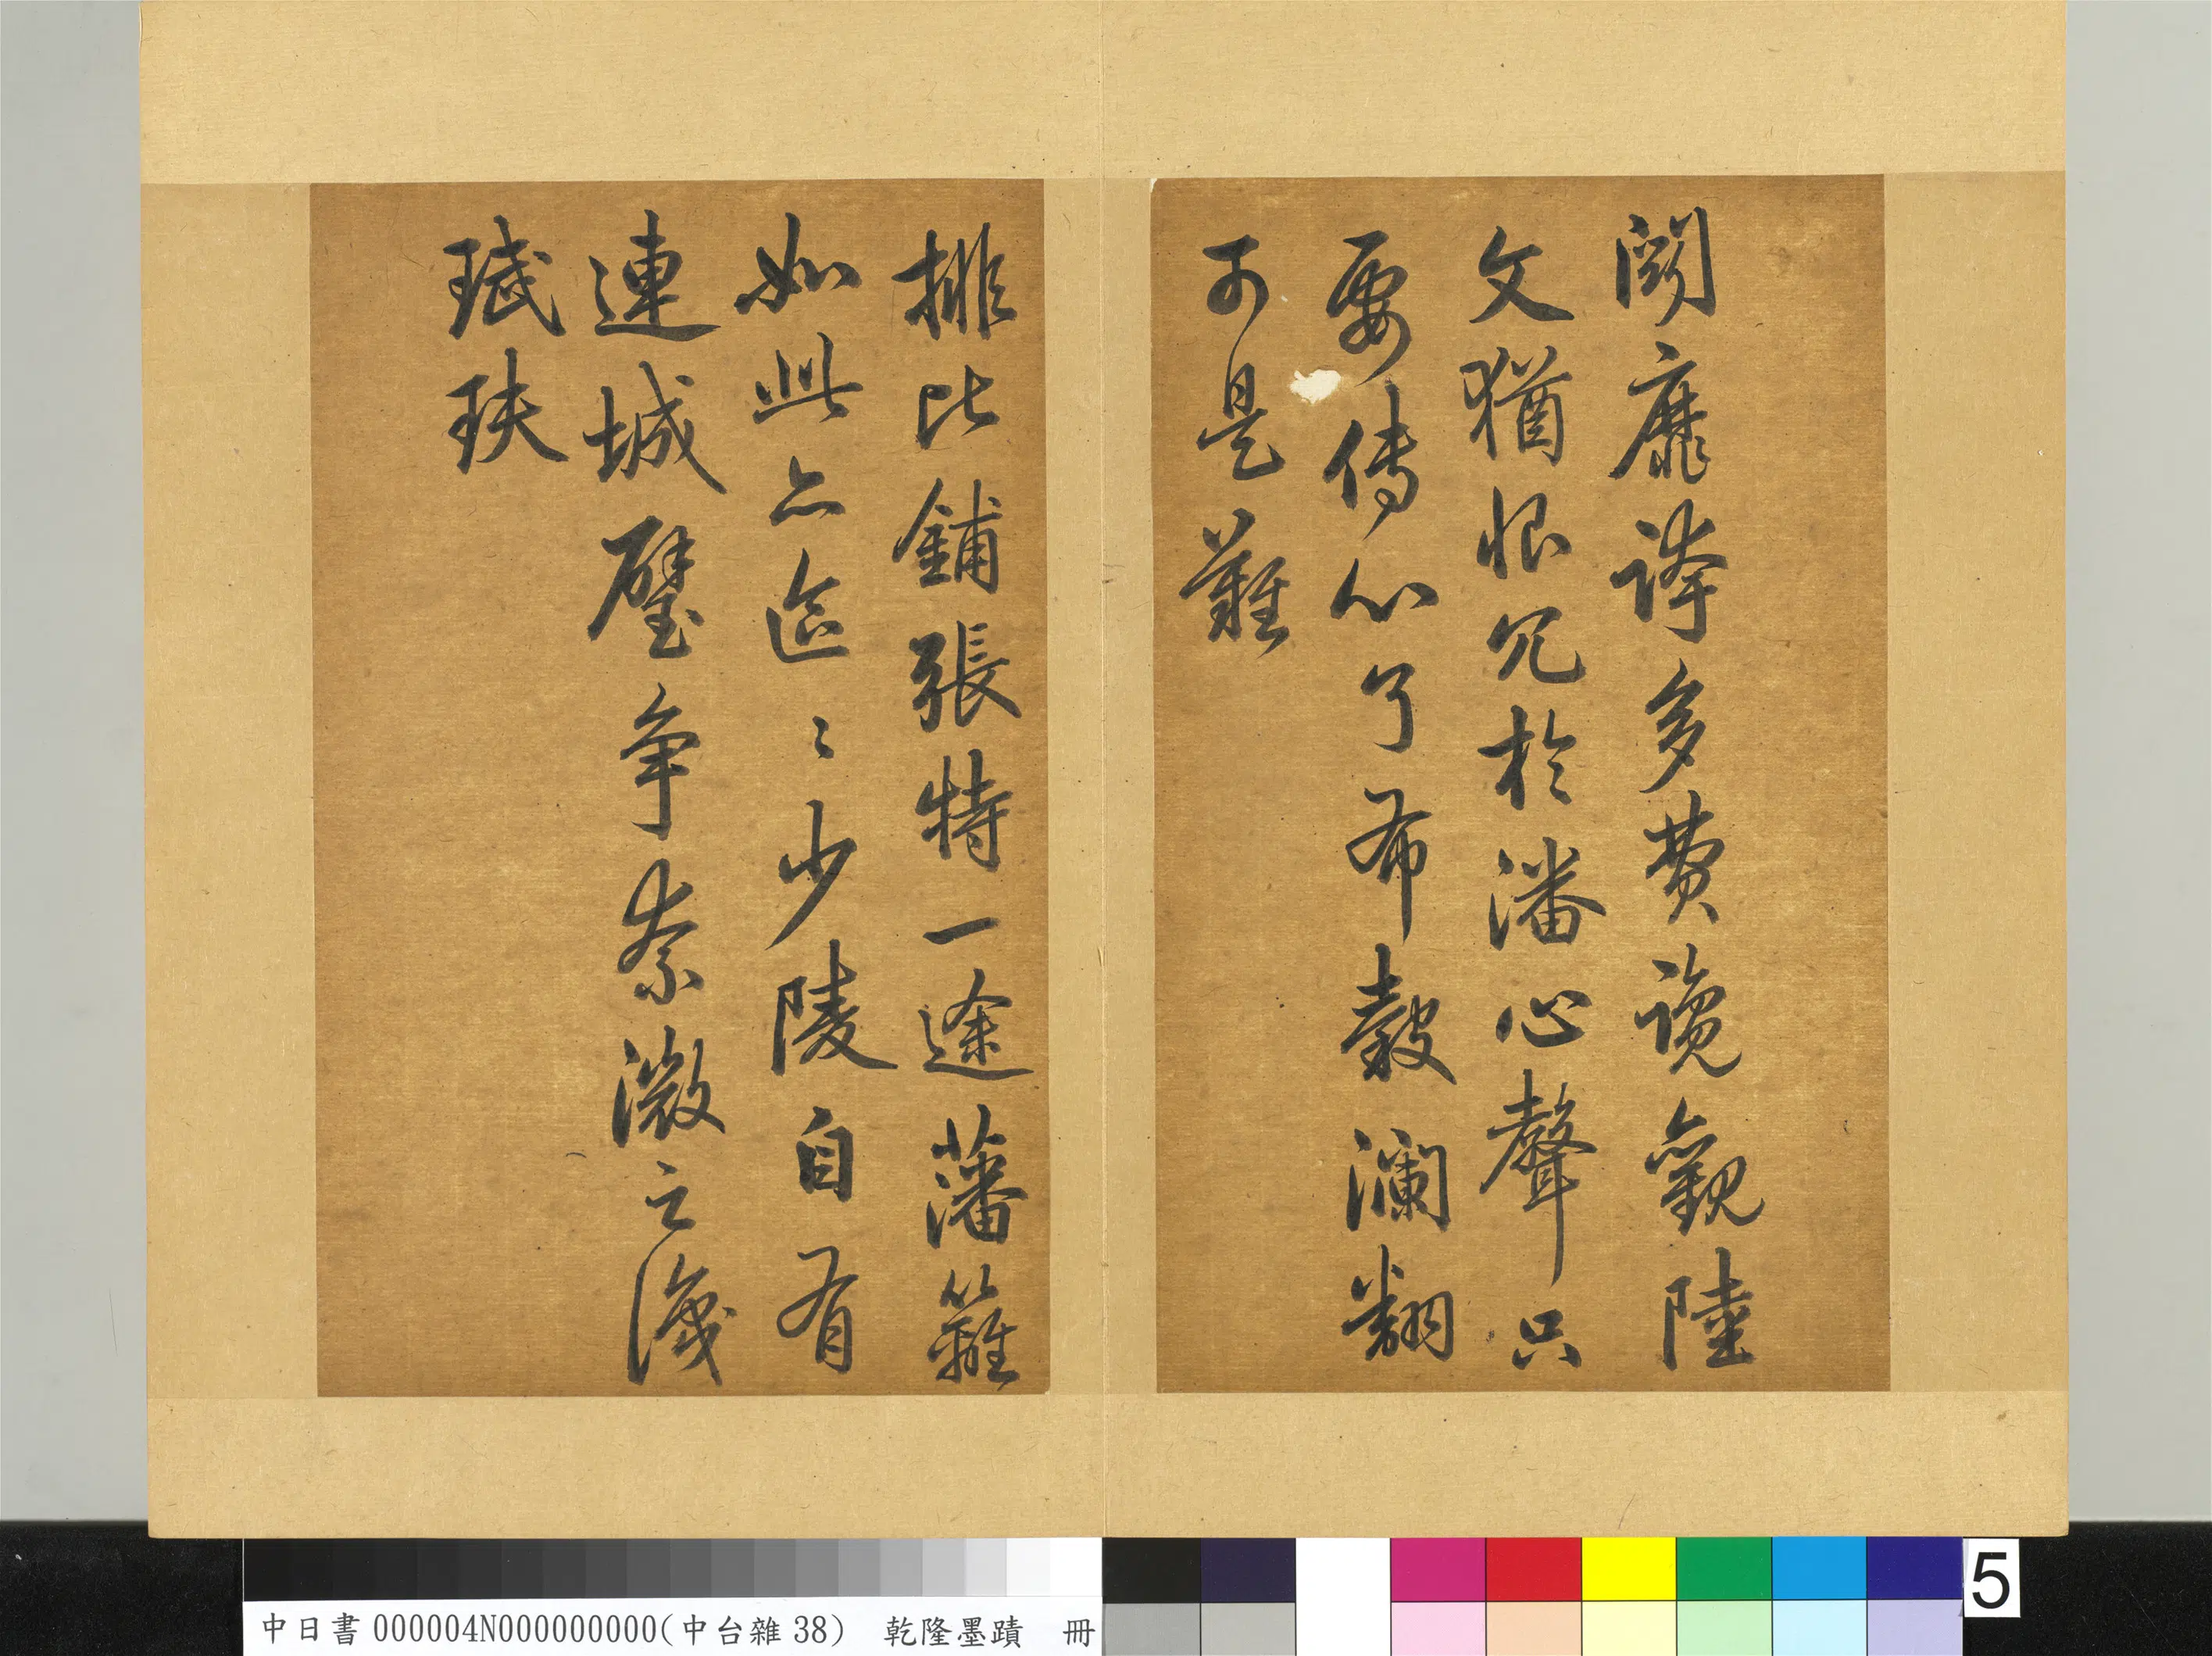 鬬靡誇多費覽觀陸
文猶恨冗於潘心聲只
要傳心了布穀瀾翻
可是難
排比鋪張特一途藩籬
如此亦區〻少陵自有
連城璧爭奈微之識
珷玞
中日書000004N000000000(中台雜38) 乾隆墨蹟 冊
5